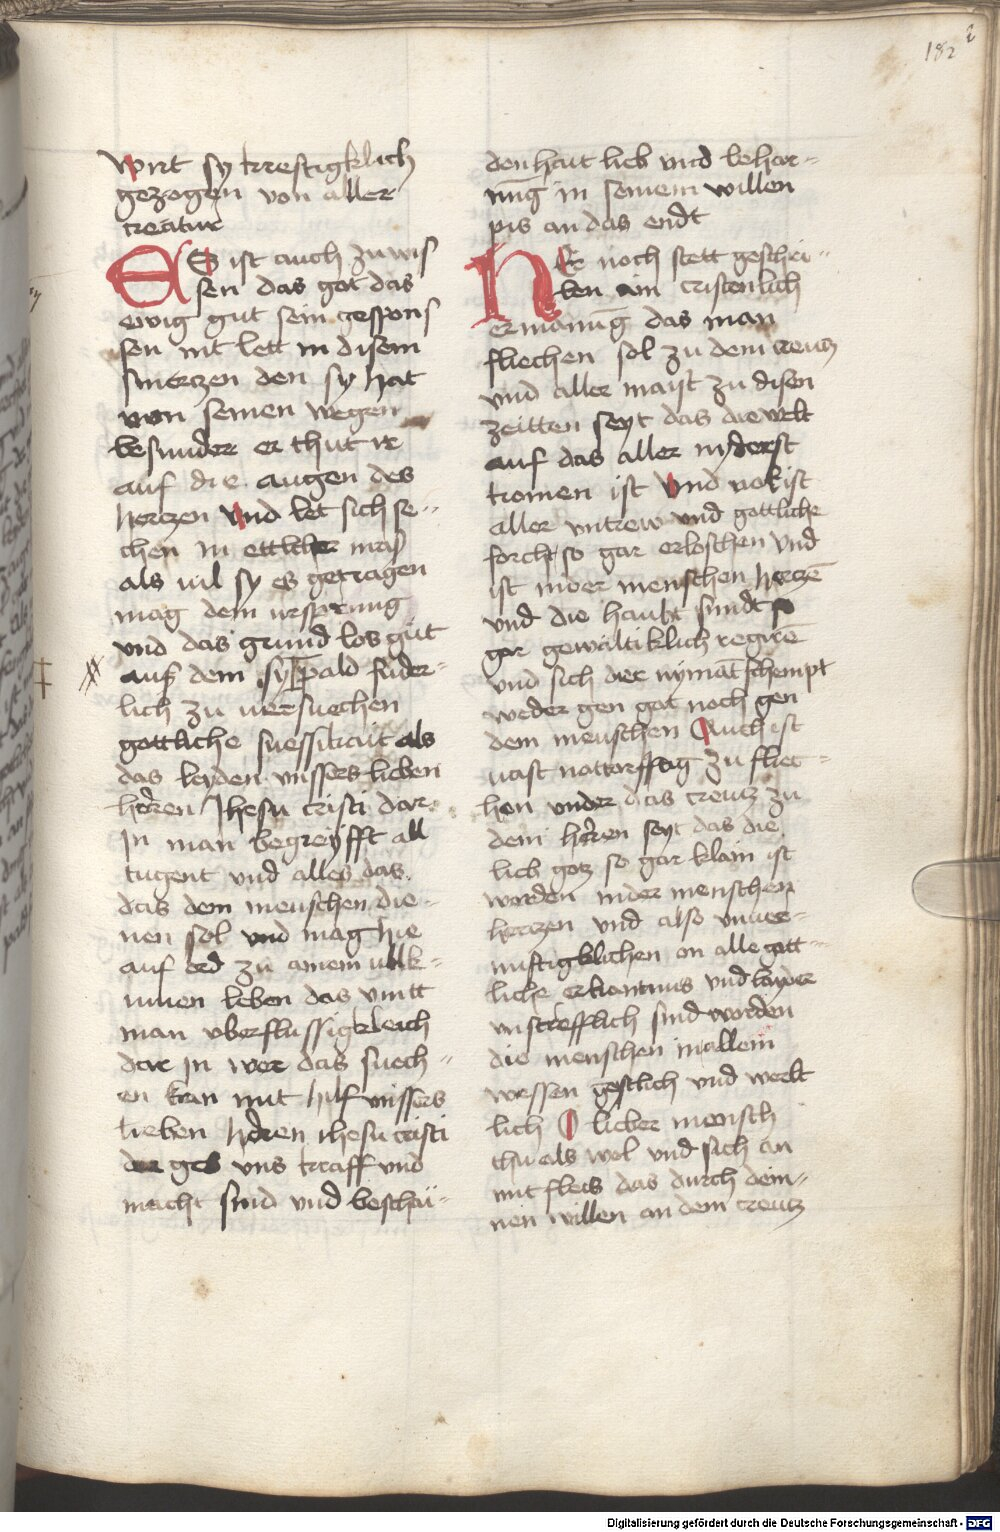 182
wirt sy krestigklich
gezogen von aller
creatur
ES ist auch zu wis
sen das got das
ewig gut sein gespons
sen nit lett in disem
smertzen den sy hat
von seinen wegen
besunder er thut ir
auf die augen des
hertzen Und let sich se-
chen in ettlicher mas
als uil sy es getragen
mag dem ursprung
und das grund los gut
auf dem sy pald fuder-
lich zu uersuechen
gottliche suessikait als
das leyden unssers lieben
herren Jhesu cristi dar
In man begreyfft all
tugent und alles das
das dem menschen die-
nen sol und mag hie
auf erd zu ainem ulk-
umen leben das vintt
man uberflussigkleich
dar in wer das suech-
en kan mit hilf unssers
lieben herren ihesu cristi
der geb uns kraff und
macht sind und beschai-
denhait lieb und behar-
rung in seinem willen
pis an das endt
Hie noch stett geschri-
ben ain cristenlich
ermanūg das man
fliechen sol zu dem creutz
und aller maist zu disen
zeitten seyt das die welt
auf das aller niderst
komen ist Und uol ist
aller untrew und gottliche
forcht so gar erloschen und
ist in der menschen hertzē
und die haubt sundt so
gar gewaltiklich regirē
und sich der nymāt schempt
weder gen got noch gen
dem menschen Auch ist
uast nottorfftig zu flie-
hen under das creutz zu
dem herren seyt das die
lieb gotz so gar klain ist
worden in der menschen
hertzen und also unuer-
nuftigklichen on alle gott-
liche erkantnus und layder
unstrefflich sind worden
die menschen in allem
wessen gestlich und welt
lich O lieber mensch
thu als wol und sich an
mit fleis das durch dein-
nen willen an dem creutz
Digitalisierung gefördert durch die Deutsche Forschungsgemeinschaft - DFG